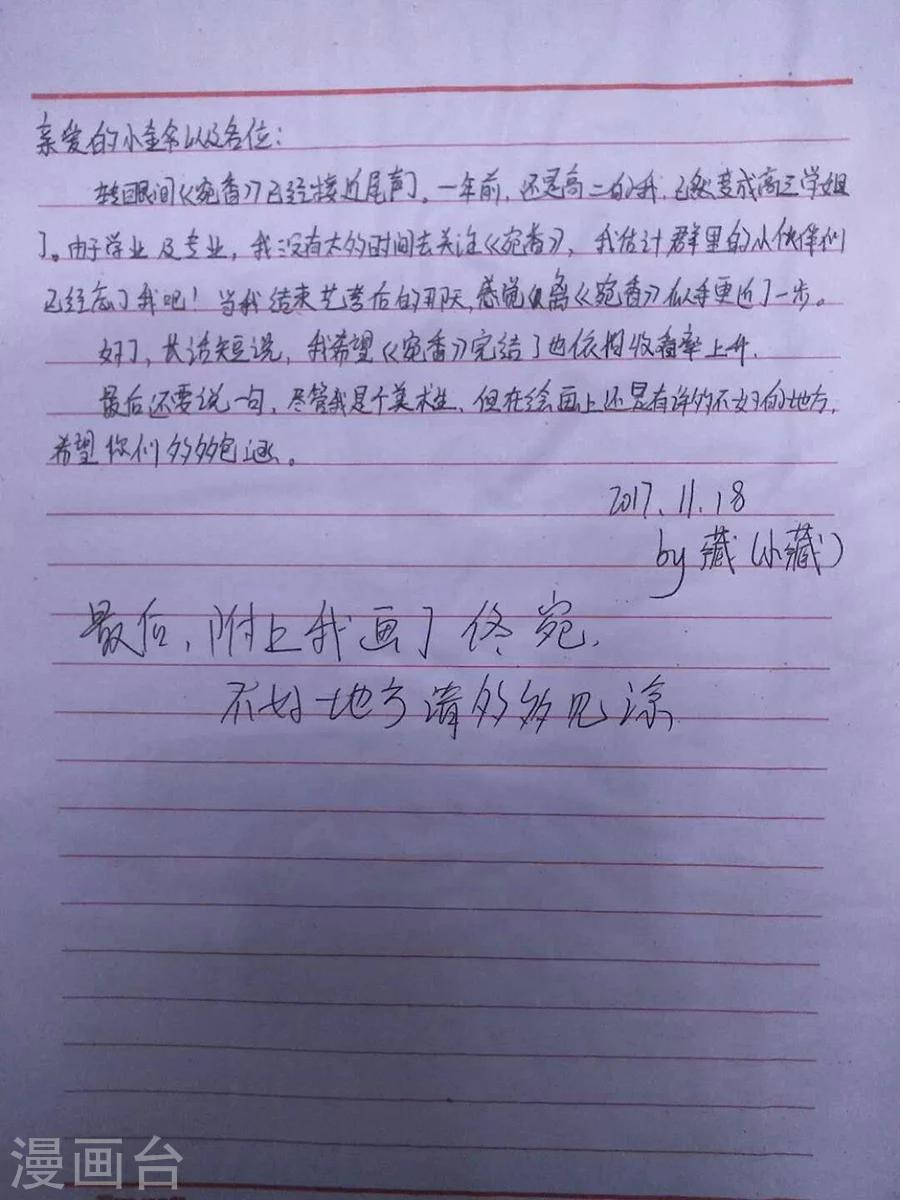 亲爱的小金爷以及各位：
转眼间《宛香》已经接近尾声了。一年前，还是高二的我，已然变成高三学姐
了。由于学业及专业，我没有太多时间去关注《宛香》，我估计群里的小伙伴们
已经忘了我吧！当我结束艺考后的那天，感觉离《宛香》似乎更近了一步。
好了，长话短说，我希望《宛香》完结了也依旧收看率上升．
最后还要说一句，尽管我是个美术生，但在绘画上还是有许多不好的地方，
希望你们多多包涵。
2017.11.18
by 藏（小藏）
最后，附上我画了佟宛，
不好地方请多多见谅
漫画台